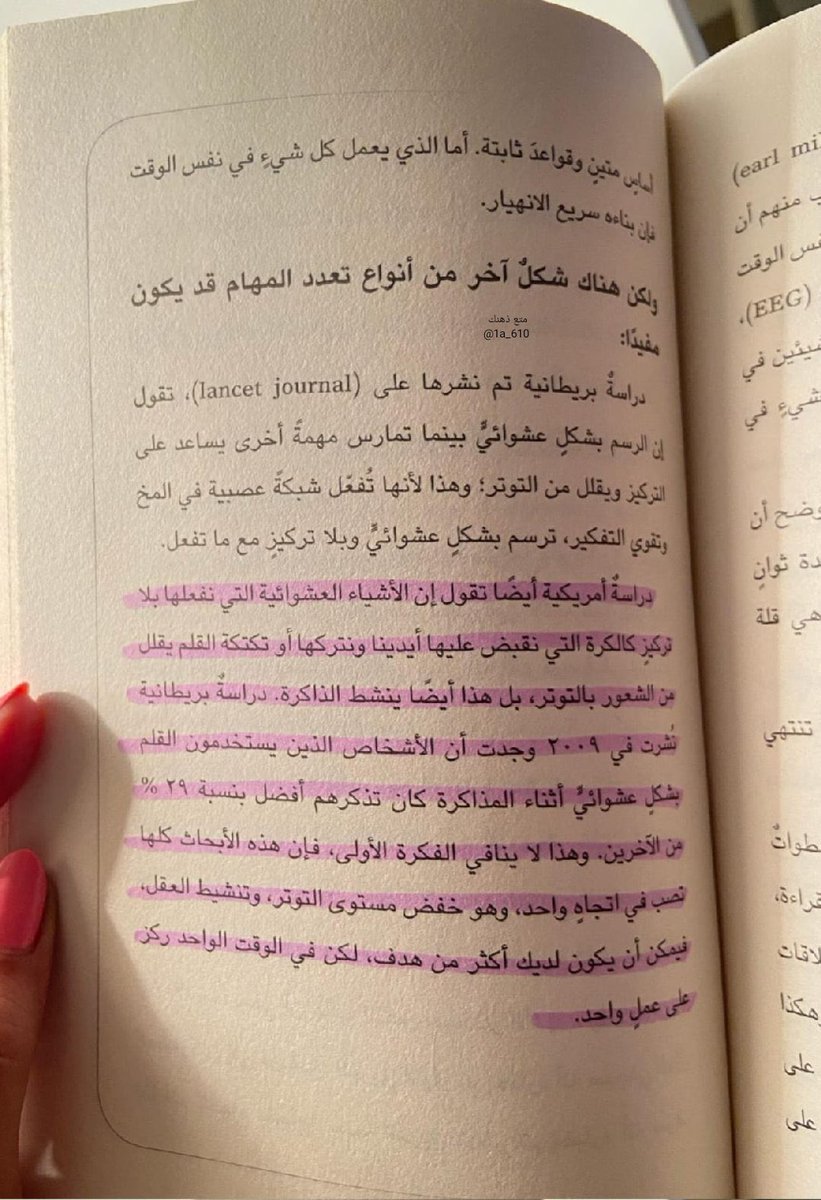 أساسٍ متينٍ وقواعدَ ثابتة. أما الذي يعمل كل شيءٍ في نفس الوقت
فإن بناءه سريع الانهيار.
ولكن هناك شكلٌ آخر من أنواع تعدد المهام قد يكون
مفيدًا:
متع ذهنك
@1a_610
دراسةٌ بريطانية تم نشرها على (lancet journal)، تقول
إن الرسم بشكلٍ عشوائيٍّ بينما تمارس مهمةً أخرى يساعد على
التركيز ويقلل من التوتر؛ وهذا لأنها تُفعّل شبكةً عصبية في المخ
وتقوي التفكير، ترسم بشكلٍ عشوائيٍّ وبلا تركيزٍ مع ما تفعل.
دراسةٌ أمريكية أيضًا تقول إن الأشياء العشوائية التي نفعلها بلا
تركيزٍ كالكرة التي نقبض عليها أيدينا ونتركها أو تكتكة القلم يقلل
من الشعور بالتوتر، بل هذا أيضًا ينشط الذاكرة. دراسةٌ بريطانية
نُشرت في ٢٠٠٩ وجدت أن الأشخاص الذين يستخدمون القلم
بشكلٍ عشوائيٍّ أثناء المذاكرة كان تذكرهم أفضل بنسبة ٢٩ %
من الآخرين. وهذا لا ينافي الفكرة الأولى، فإن هذه الأبحاث كلها
تصب في اتجاهٍ واحد، وهو خفض مستوى التوتر، وتنشيط العقل،
فيمكن أن يكون لديك أكثر من هدف، لكن في الوقت الواحد ركز
على عملٍ واحد.
(earl mi
منهم أن
نفس الوقت
(EEG)،
شيئين في
شيءٍ في
وضح أن
ثوانٍ
هي قلة
تنتهي
على
على